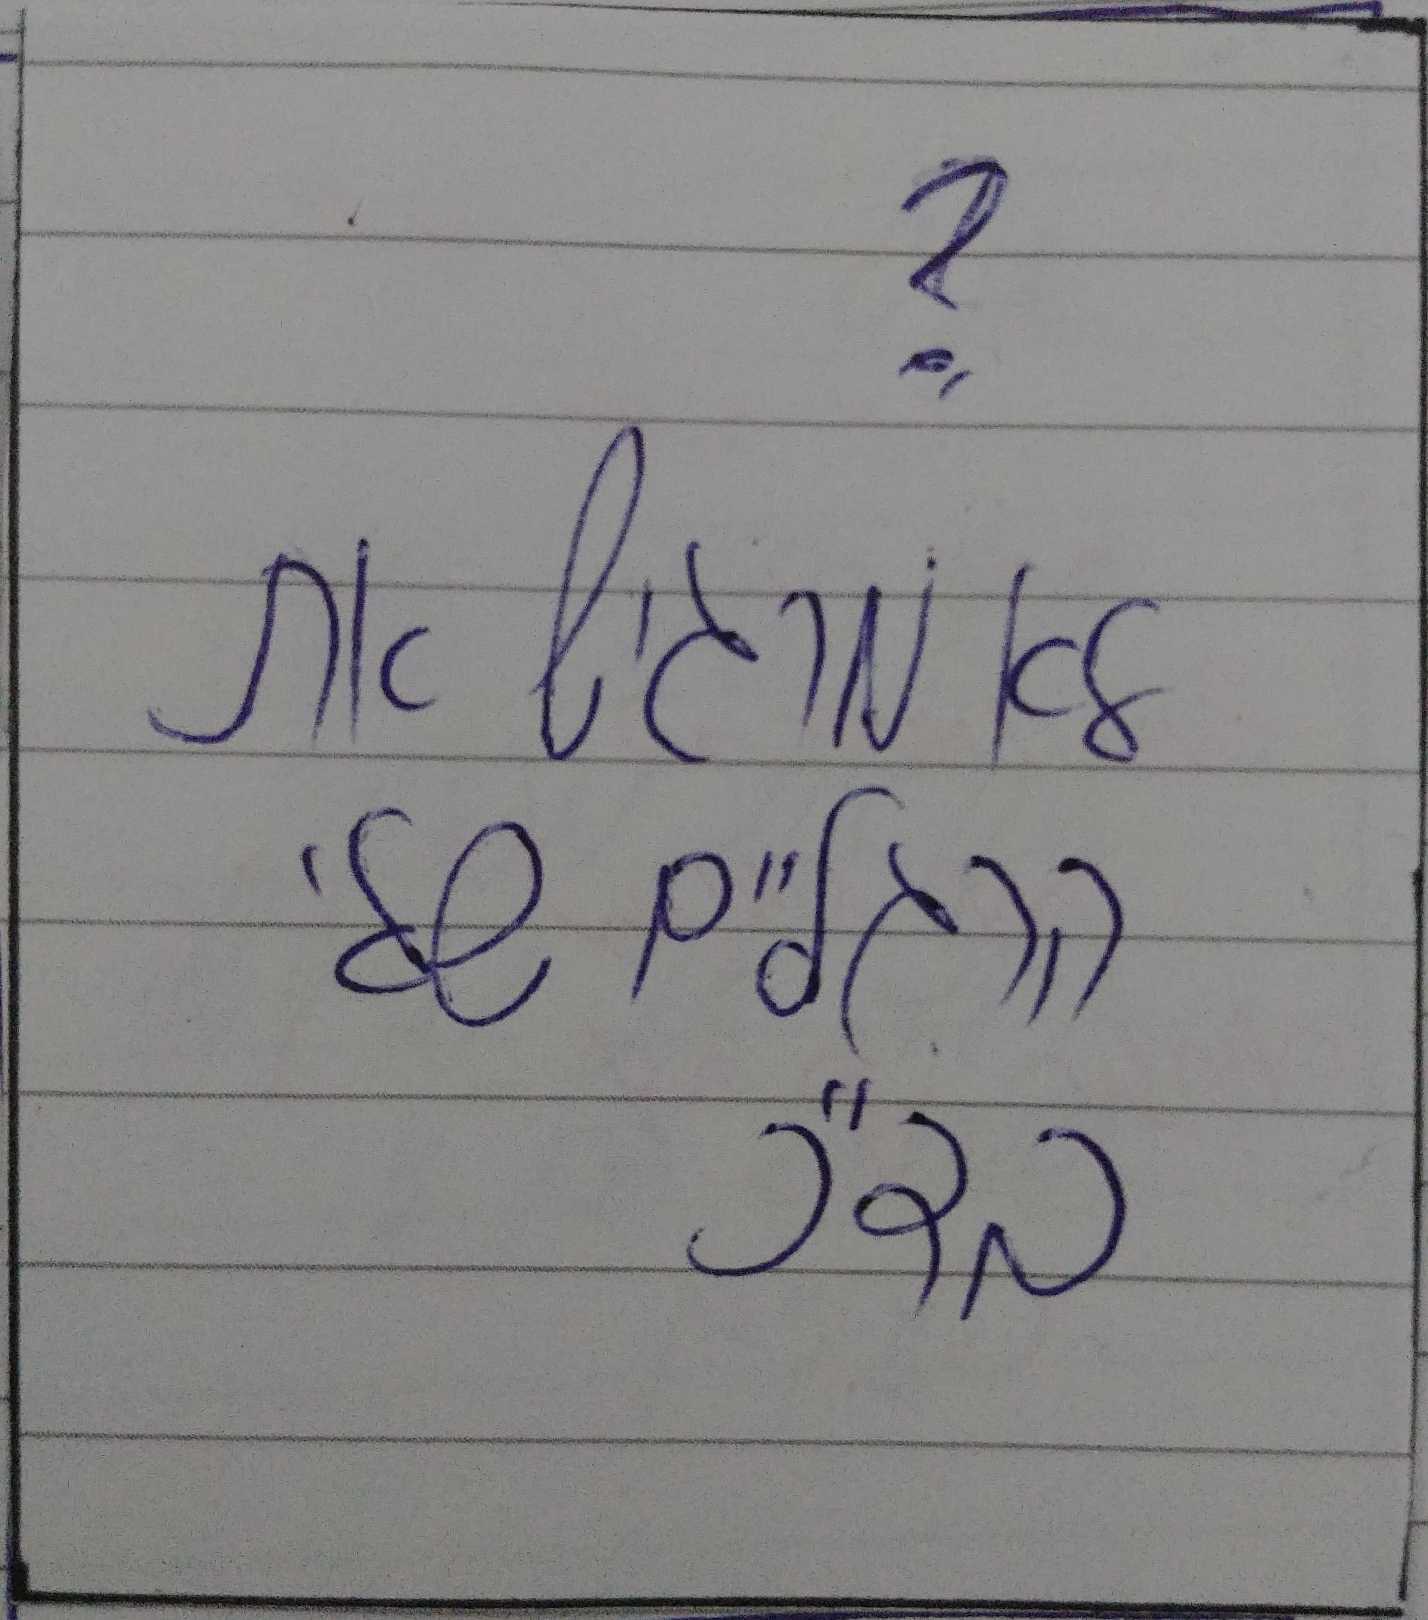 ?
לא מרגיש את
הרגליים שלי
מב"ר